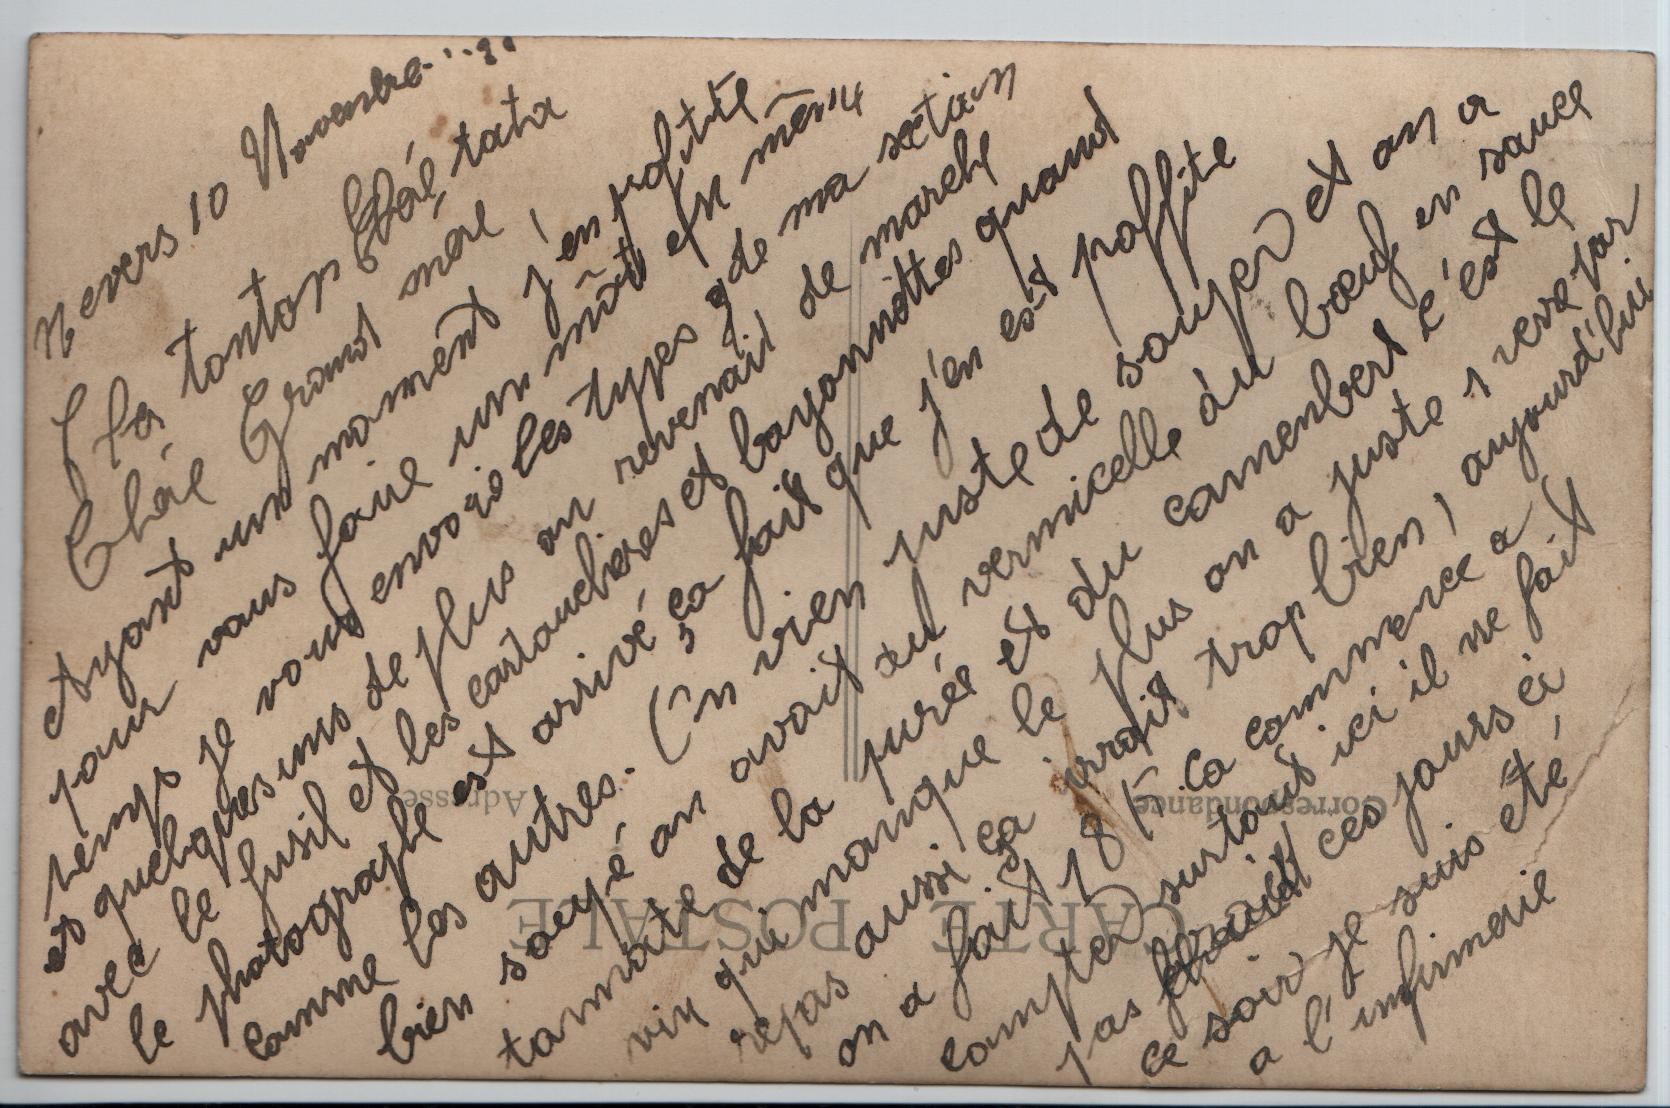 Nevers 10 Novembre
Cher tonton Chère tata
Chère Grand mère
Ayant un moment j'en pofitte
pour vous faire un mot et en même
temps je vous envois les types de ma section
et quelques uns de plus on revenait de marche
avec le fusil et les cartouchieres et bayonnettes quand
le photographe est arrivé ça fait que j'en est poffite
comme les autres. On vien juste de souper et on a
bien soupé on avait du vermicelle du bœuf en sauce
tomate de la purée et du camenbert c'est le
vin qui manque le plus on a juste 1 verre par
repas aussi ça irrait trop bien, aujourd'hui
on a fait 18 K ça commence a
compter surtout ici il ne fait
pas chaud ces jours ci
ce soir je suis été
a l'infirmerie
CARTE POSTALE
Correspondance
Adresse